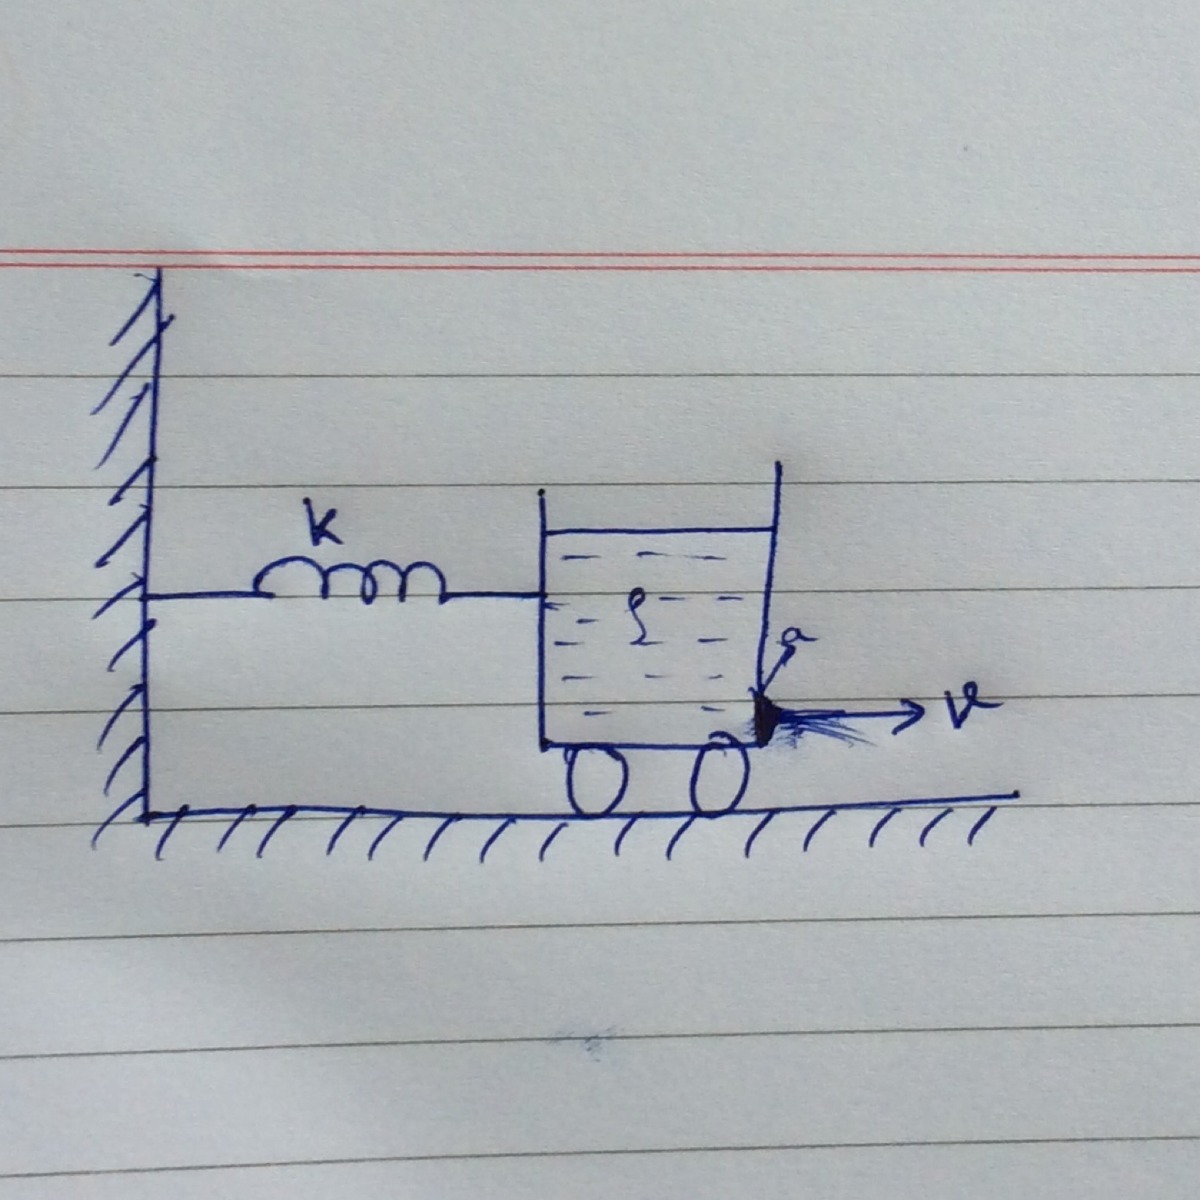 k
ρ
a
v